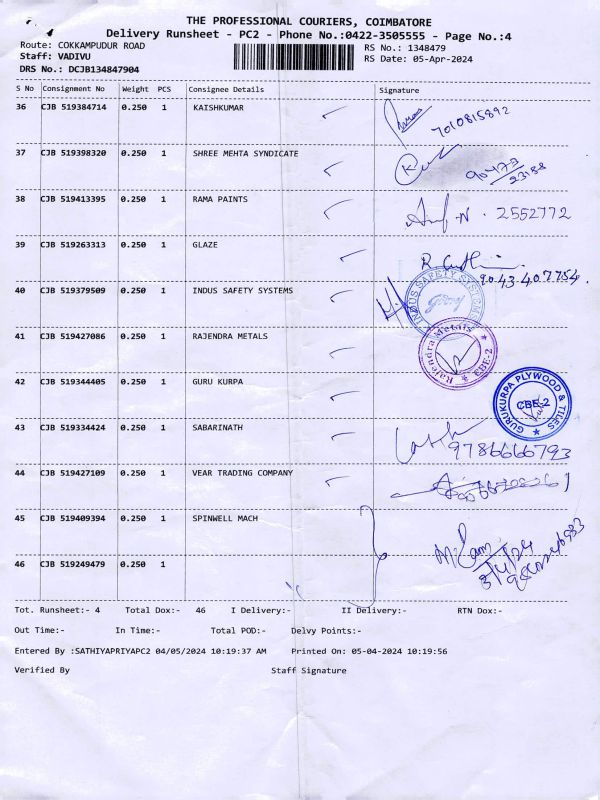 THE PROFESSIONAL COURIERS, COIMBATORE
4
Delivery Runsheet - PC2 - Phone No.:0422-3505555 - Page No.:4
Route: COKKAMPUDUR ROAD
RS No.: 1348479
Staff: VADIVU
RS Date: 05-Apr-2024
DRS No.: DCJB134847904
S No Consignment No Weight PCS Consignee Details Signature
36 CJB 519384714 0.250 1 KAISHKUMAR
7010815892
37 CJB 519398320 0.250 1 SHREE MEHTA SYNDICATE
90477
23188
38 CJB 519413395 0.250 1 RAMA PAINTS
2552772
39 CJB 519263313 0.250 1 GLAZE
9043407754.
40 CJB 519379509 0.250 1 INDUS SAFETY SYSTEMS
INDUS SAFETY SYSTEMS
Godrej
41 CJB 519427086 0.250 1 RAJENDRA METALS
Rajendra Metals
CBE-2
42 CJB 519344405 0.250 1 GURU KURPA
GURUKURPA PLYWOOD & TILES
CBE-2
43 CJB 519334424 0.250 1 SABARINATH
9786666793
44 CJB 519427109 0.250 1 VEAR TRADING COMPANY
45 CJB 519409394 0.250 1 SPINWELL MACH
46 CJB 519249479 0.250 1
Tot. Runsheet:- 4 Total Dox:- 46 I Delivery:- II Delivery:- RTN Dox:-
Out Time:- In Time:- Total POD:- Delvy Points:-
Entered By :SATHIYAPRIYAPC2 04/05/2024 10:19:37 AM Printed On: 05-04-2024 10:19:56
Verified By Staff Signature